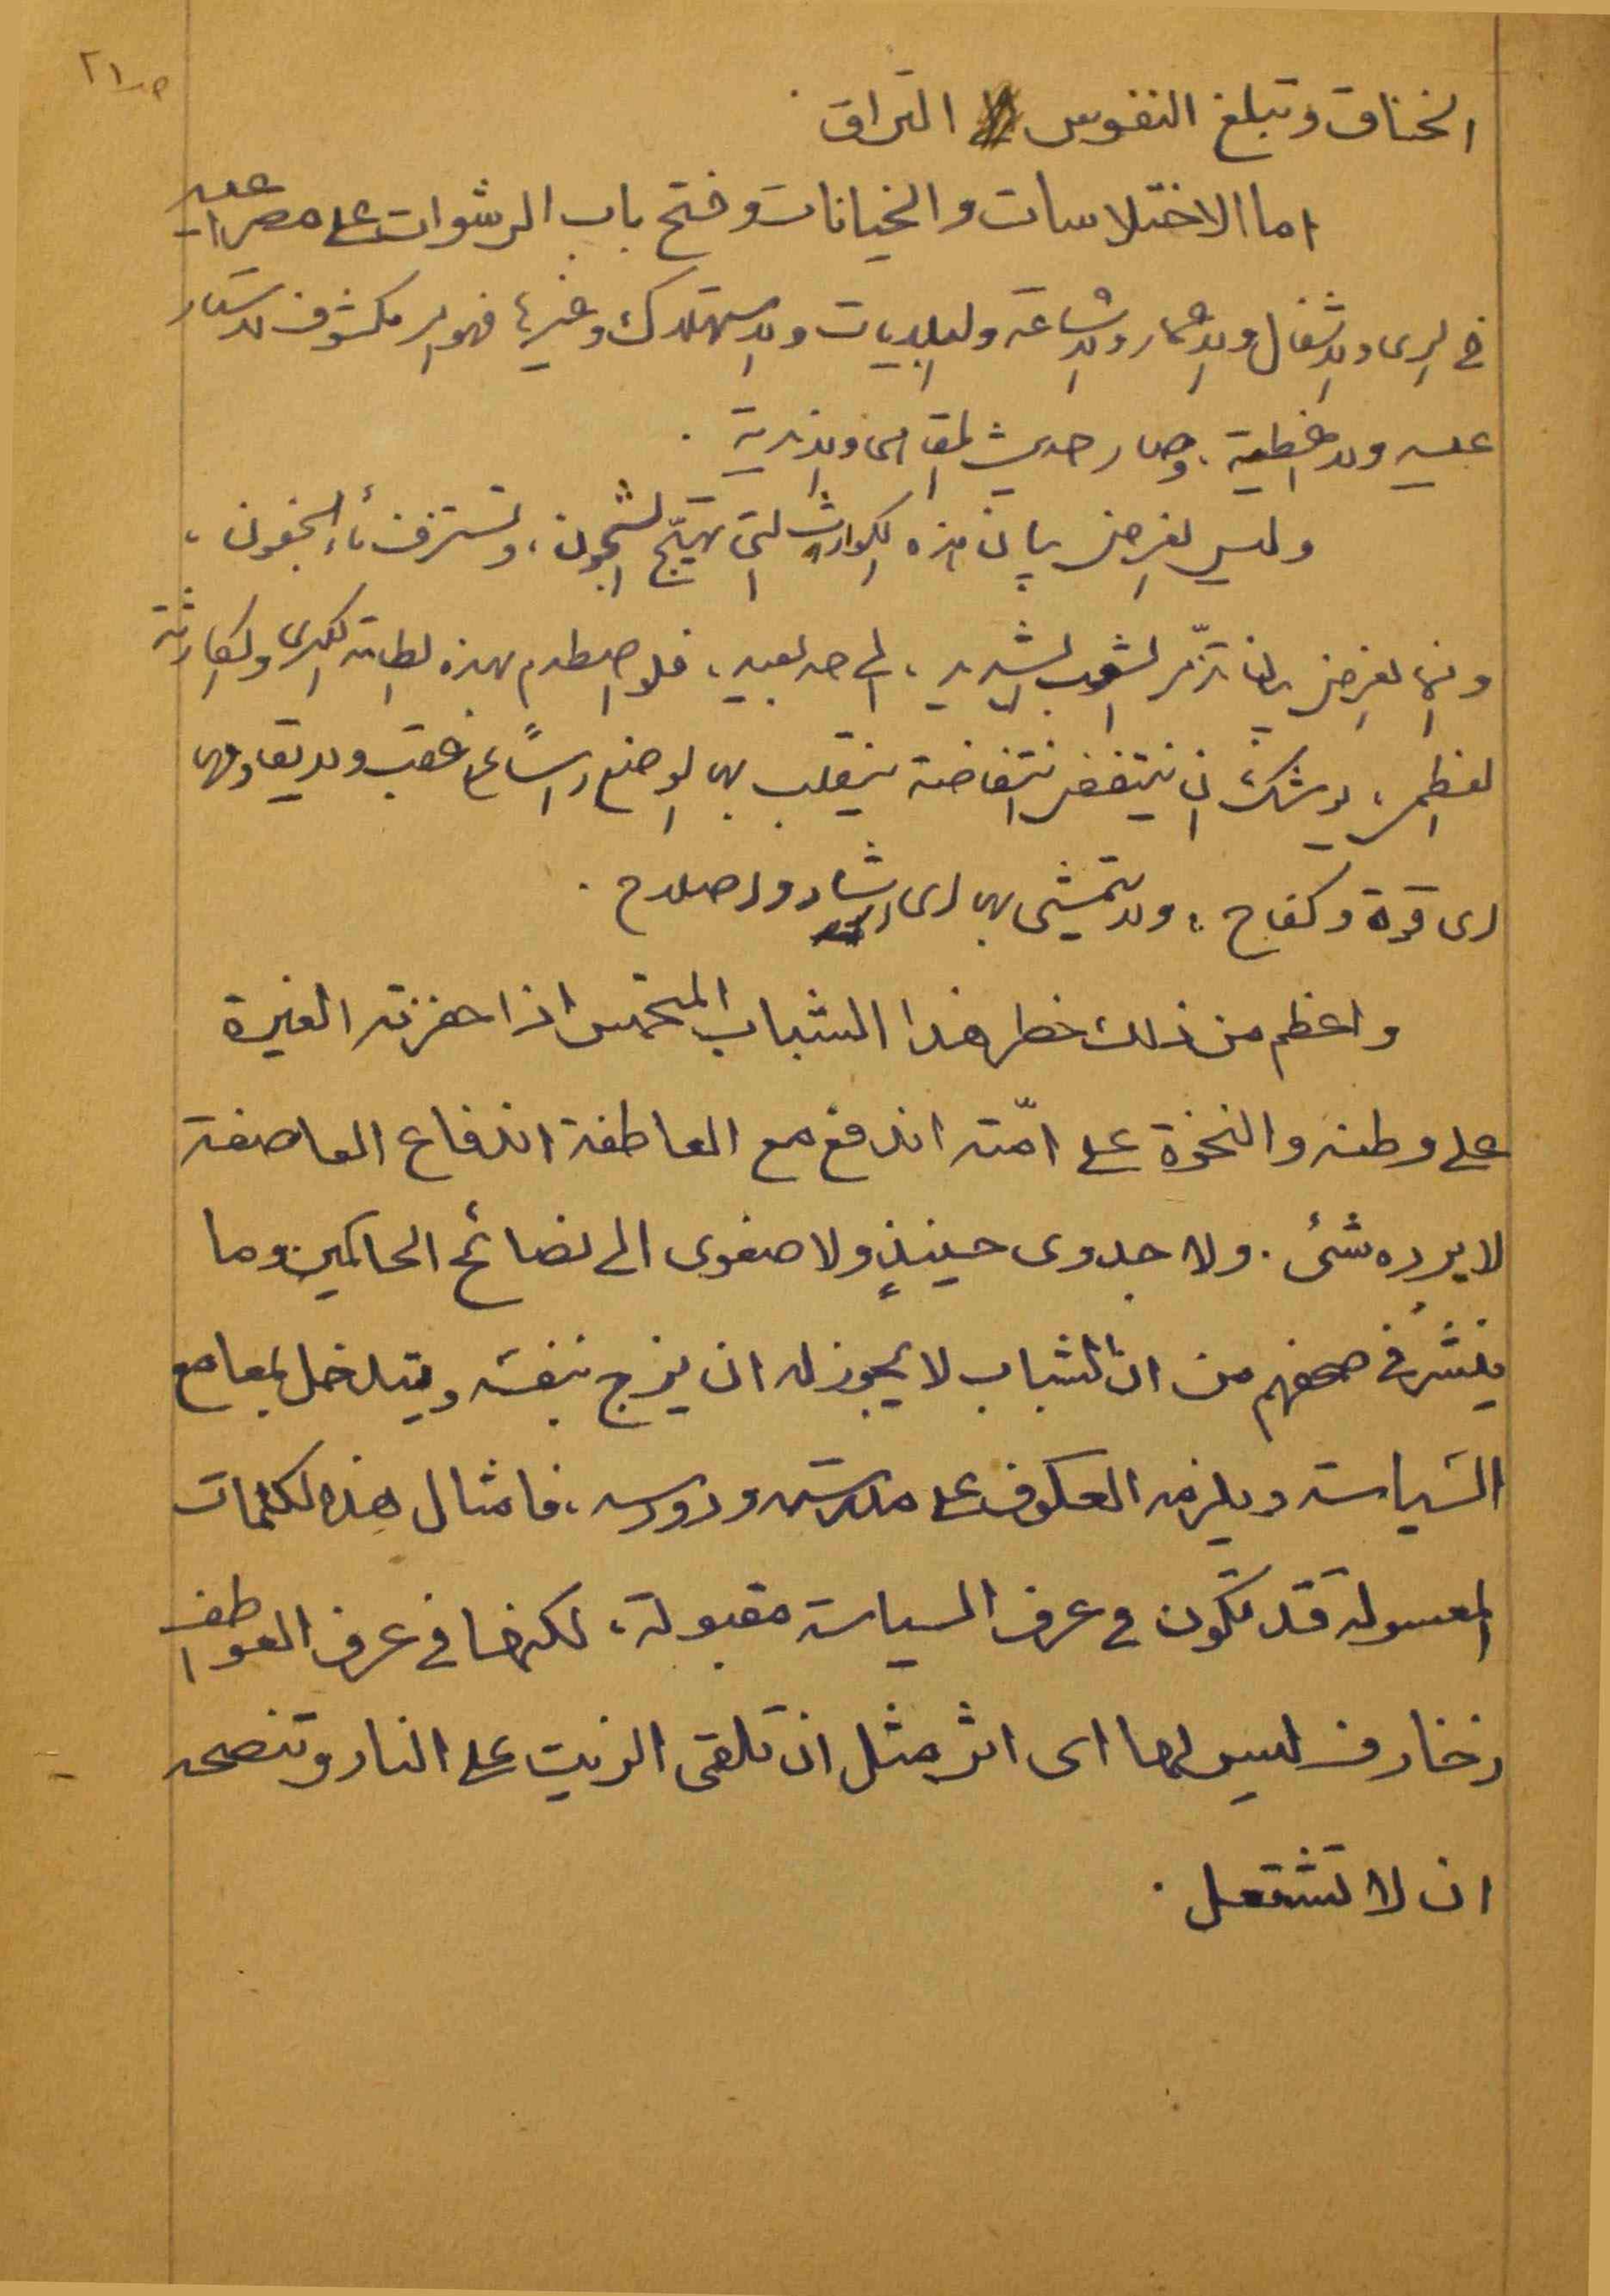 ص ٢١
الخناق وتبلغ النفوس التراق.
اما الاختلاسات والخيانات وفتح باب الرشوات على مصراعيه
في الري والاشغال والاعمار والاشاعة والبلديات والاستهلاك وغيرها فهو امر مكشوف لا ستار
عليه ولا غطية، وصار حديث المقاهي والاندية.
وليس الغرض بيان هذه الكوارث التي تهيّج الشجون، وتستنزف ماء الجفون،
وانما الغرض بيان تذمّر الشعب الشديد، الى حد بعيد، فلو اصطدم بهذه الطامة الكبرى والكارثة
العظمى، يوشك ان ينتفض انتفاضة ينقلب بها الوضع رأساً على عقب ولا يقاومها
اى قوة وكفاح، ولا يتمشى بها اى ارشاد واصلاح.
واعظم من ذلك خطر هذا الشباب المتحمس اذا حفزته الغيرة
على وطنه والنخوة على امّته اندفع مع العاطفة اندفاع العاصفة
لا يرده شئ. ولا جدوى حينئذٍ ولا صغوى الى نصائح الحاكمين وما
ينشر في صحفهم من ان الشباب لا يجوز له ان يزج بنفسه ويتدخل بمعامع
السياسة ويلزمه العكوف على مدرسته ودروسه، فامثال هذه الكلمات
المعسولة قد تكون في عرف السياسة مقبولة، لكنها في عرف العواطف
زخارف ليس لها اى اثر مثل ان تلقى الزيت على النار وتنصحه
ان لا تشتعل.